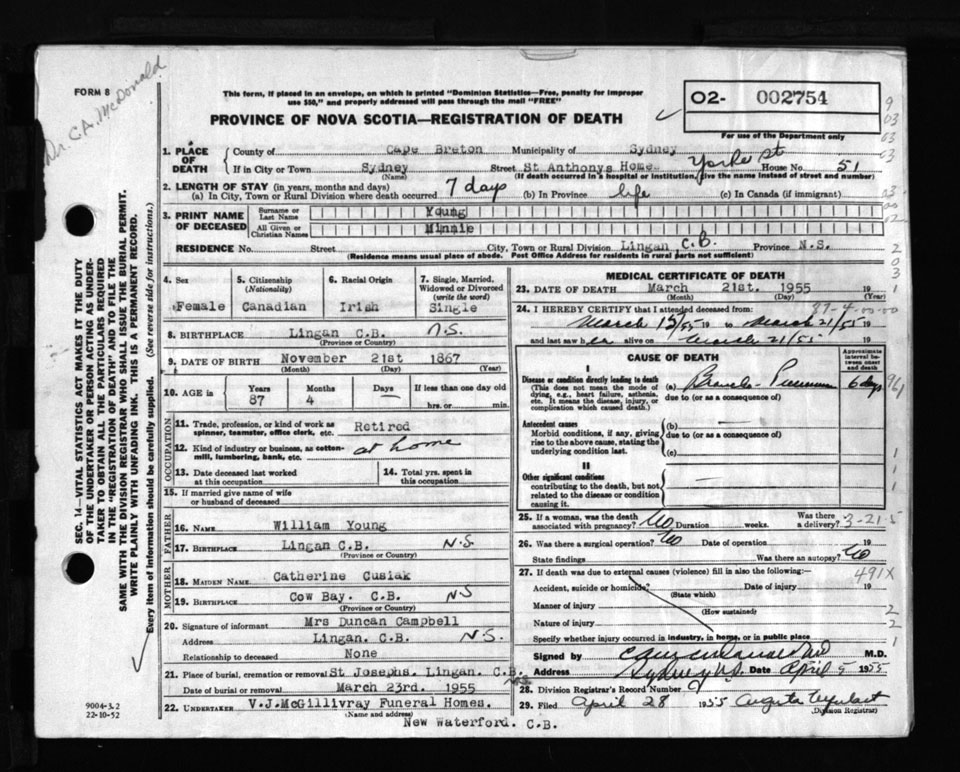 FORM 8
Dr. C.A. McDonald
This form, if placed in an envelope, on which is printed "Dominion Statistics—Free, penalty for improper
use $50," and properly addressed will pass through the mail "FREE"
O2- 002754
For use of the Department only
PROVINCE OF NOVA SCOTIA—REGISTRATION OF DEATH
SEC. 14—VITAL STATISTICS ACT MAKES IT THE DUTY
OF THE UNDERTAKER OR PERSON ACTING AS UNDER-
TAKER TO OBTAIN ALL THE PARTICULARS REQUIRED
IN THE "REGISTRATION OF DEATH" AND TO FILE THE
SAME WITH THE DIVISION REGISTRAR WHO SHALL ISSUE THE BURIAL PERMIT.
WRITE PLAINLY WITH UNFADING INK. THIS IS A PERMANENT RECORD.
Every item of Information should be carefully supplied. (See reverse side for instructions.)
1. PLACE OF DEATH County of Cape Breton Municipality of Sydney
If in City or Town Sydney Street St Anthonys Home. Yorke St House No. 51
(Name) (If death occurred in a hospital or institution, give the name instead of street and number)
2. LENGTH OF STAY (in years, months and days)
(a) In City, Town or Rural Division where death occurred 7 days (b) In Province life (c) In Canada (if immigrant)
3. PRINT NAME OF DECEASED Surname or Last Name Young
All Given or Christian Names Minnie
RESIDENCE No. Street City, Town or Rural Division Lingan C.B. Province N.S.
(Residence means usual place of abode. Post Office Address for residents in rural parts not sufficient)
4. Sex 5. Citizenship (Nationality) 6. Racial Origin 7. Single, Married, Widowed or Divorced (write the word)
Female Canadian Irish Single
8. BIRTHPLACE Lingan C.B. N.S.
(Province or Country)
9. DATE OF BIRTH November 21st 1867
(Month) (Day) (Year)
10. AGE in Years 87 Months 4 Days — If less than one day old
hrs. or min.
OCCUPATION
11. Trade, profession, or kind of work as spinner, teamster, office clerk, etc. Retired
12. Kind of industry or business, as cotton-mill, lumbering, bank, etc. at home
13. Date deceased last worked at this occupation 14. Total yrs. spent in this occupation
15. If married give name of wife or husband of deceased
FATHER
16. NAME William Young
17. BIRTHPLACE Lingan C.B. N.S.
(Province or Country)
MOTHER
18. MAIDEN NAME Catherine Cusiak
19. BIRTHPLACE Cow Bay. C.B. N S
(Province or Country)
20. Signature of informant Mrs Duncan Campbell
Address Lingan. C.B. N.S.
Relationship to deceased None
21. Place of burial, cremation or removal St Josephs. Lingan. C.B. N.S.
Date of burial or removal March 23rd. 1955
22. UNDERTAKER V.J.McGillivray Funeral Homes.
(Name and address)
New Waterford. C.B.
MEDICAL CERTIFICATE OF DEATH
23. DATE OF DEATH March 21st. 1955
(Month) (Day) (Year)
24. I HEREBY CERTIFY that I attended deceased from:
March 15/55 19 to March 21/55 19
and last saw her alive on March 21/55 19
CAUSE OF DEATH
Approximate interval between onset and death
I
Disease or condition directly leading to death
(This does not mean the mode of dying, e.g., heart failure, asthenia, etc. It means the disease, injury, or complication which caused death.)
(a) Broncho- Pneumonia 6 days
due to (or as a consequence of)
Antecedent causes
Morbid conditions, if any, giving rise to the above cause, stating the underlying condition last.
(b) —
due to (or as a consequence of)
(c)
II
Other significant conditions
contributing to the death, but not related to the disease or condition causing it.
25. If a woman, was the death associated with pregnancy? No Duration weeks. Was there a delivery? 3-21-5
26. Was there a surgical operation? No Date of operation 19
State findings Was there an autopsy? No
27. If death was due to external causes (violence) fill in also the following:—
491X
Accident, suicide or homicide? Date of injury 19
(State which)
Manner of injury
(How sustained)
Nature of injury
Specify whether injury occurred in industry, in home, or in public place
Signed by M.D.
Address Sydney N.S. Date April 5 1955
28. Division Registrar's Record Number
29. Filed April 28 1955 Augusta
(Division Registrar)
9004-3.2
22-10-52